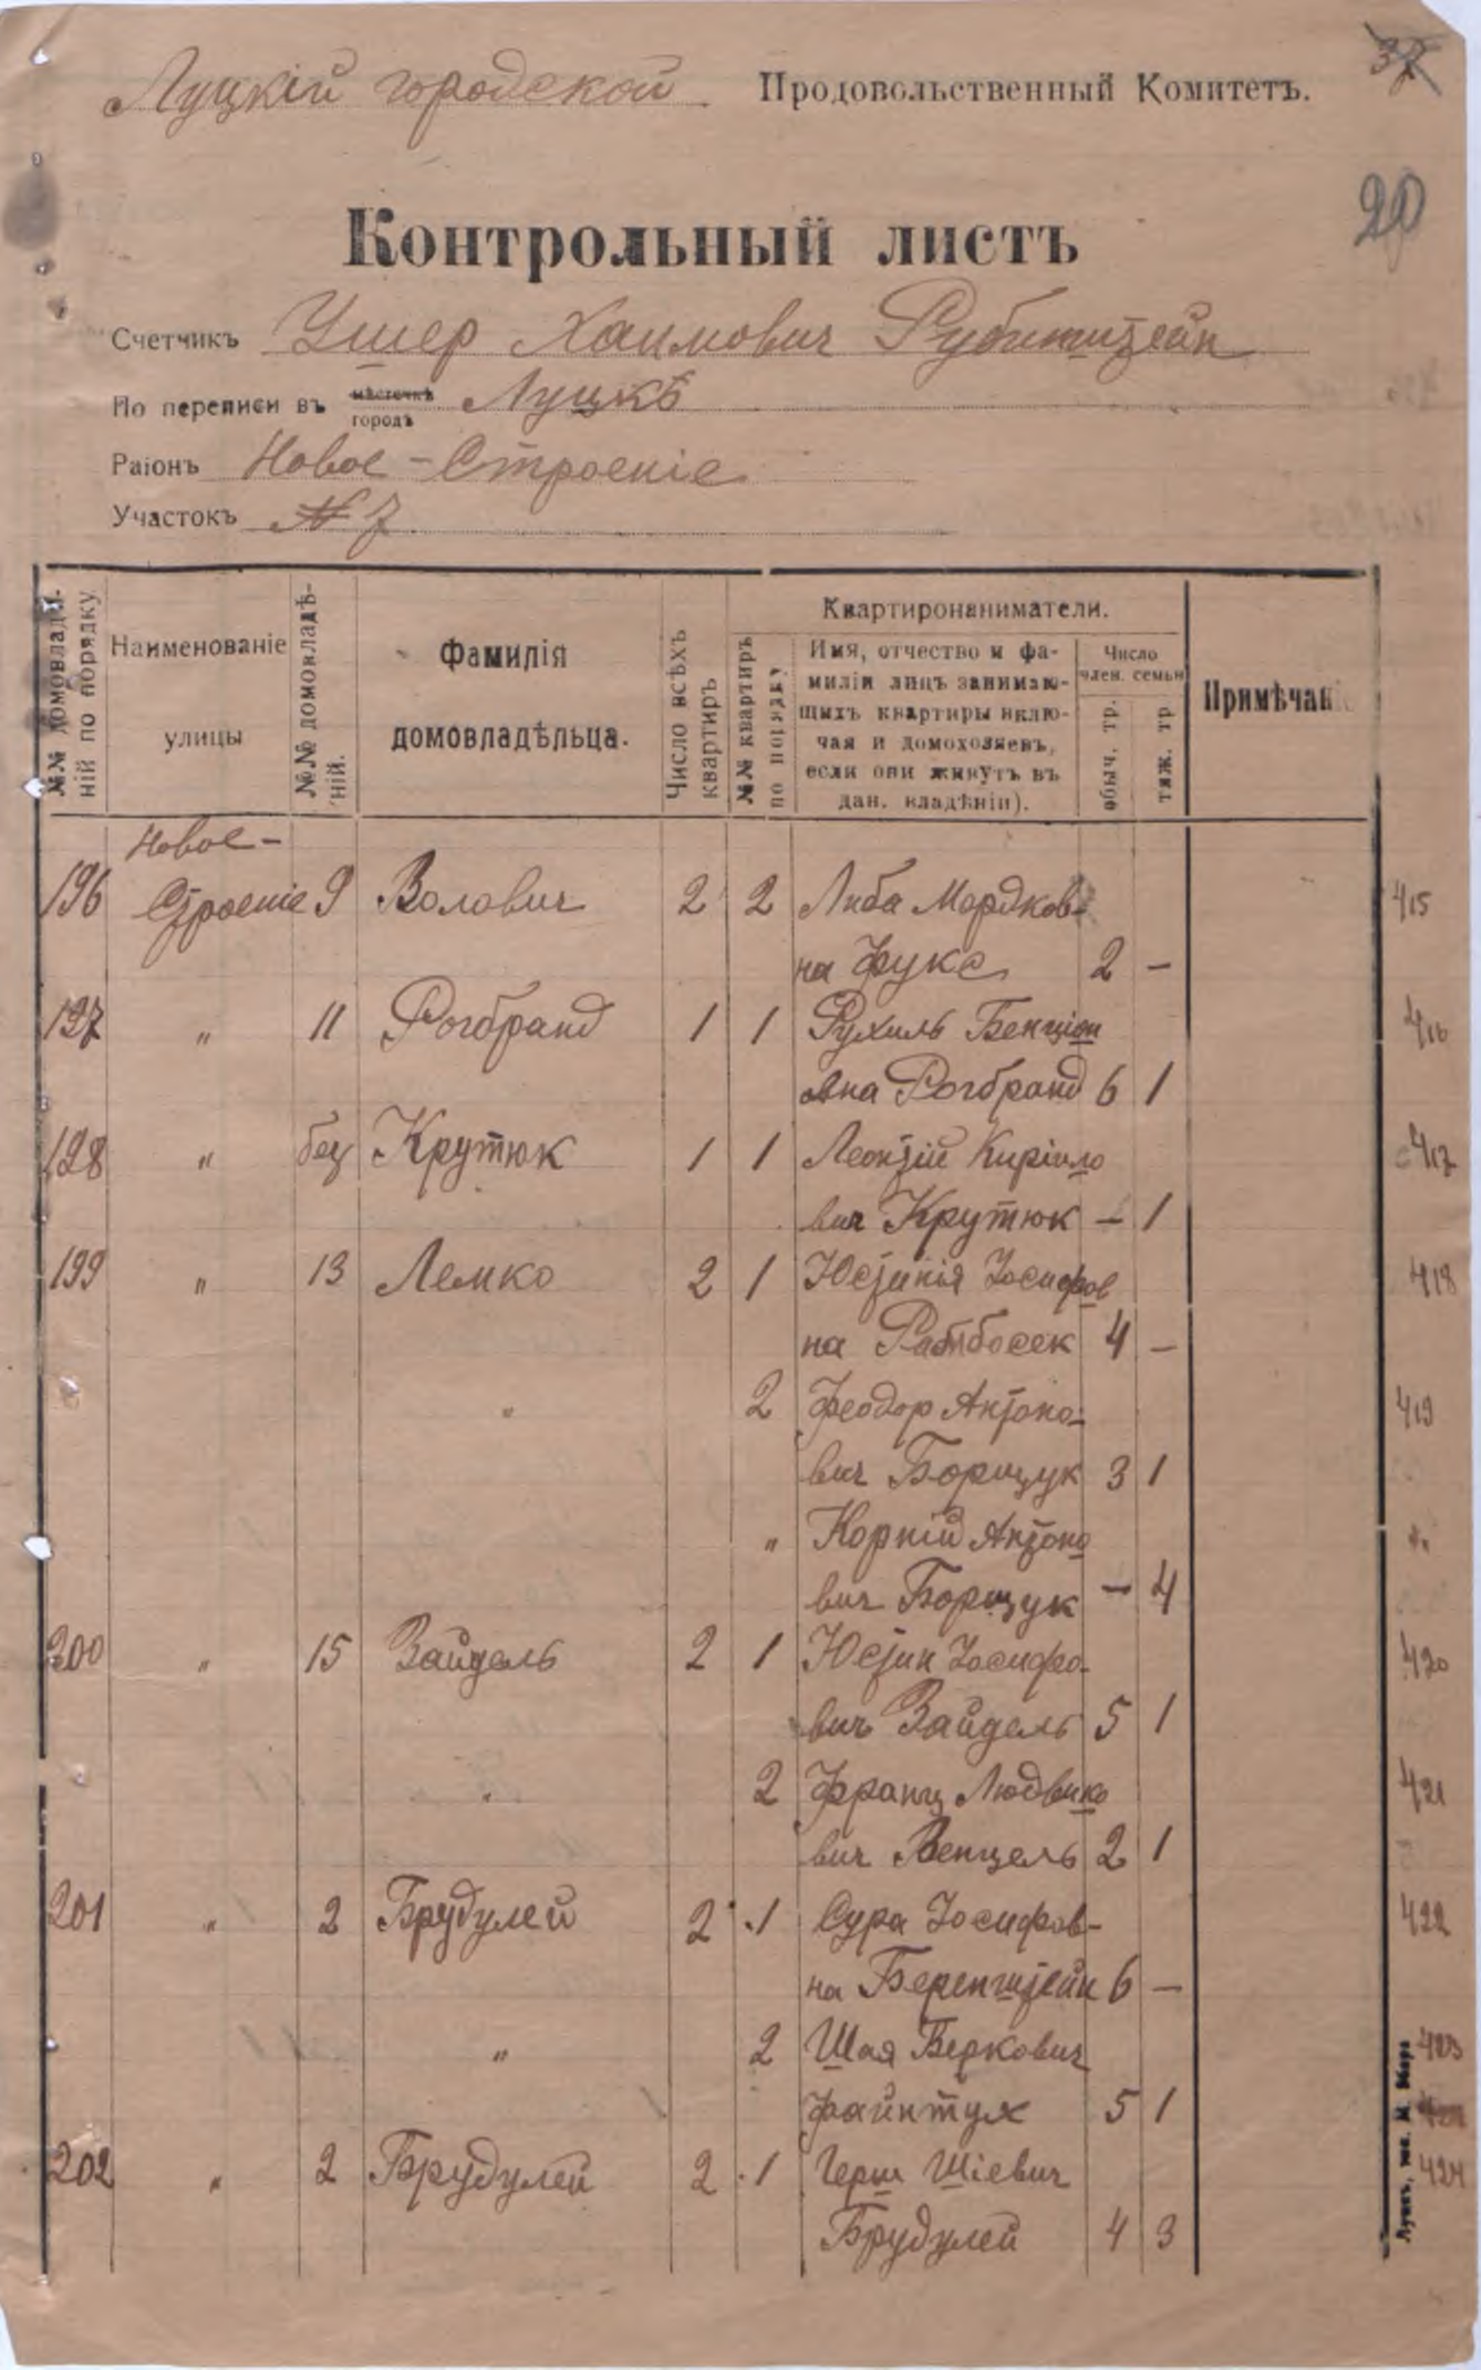 37
Луцкій городской Продовольственный Комитетъ.
20
Контрольный листъ
Счетчикъ Ушер Хаимович Рубинштейн
По переписи въ мѣстечкѣ городѣ Луцкѣ
Раіонъ Новое-Строеніе
Участокъ № 7
№№ домовладѣній по порядку
Наименованіе улицы
№№ домовладѣній.
Фамилія домовладѣльца.
Число всѣхъ квартиръ
Квартиронаниматели.
№№ квартиръ по порядку
Имя, отчество и фа-
миліи лицъ занимаю-
щихъ квартиры вклю-
чая и домохозяевъ,
если они живутъ въ
дан. владѣніи).
Число
член. семьи
обыч. тр.
тяж. тр.
Примѣчані
Новое-
196 Строеніе 9 Волович 2 2 Либа Мордков- 415
на Фукс 2 —
197 " 11 Рогбранд 1 1 Рухиль Бенціон 416
овна Рогбранд 6 1
198 " без Крутюк 1 1 Леонтій Кирило 417
вич Крутюк — 1
199 " 13 Лемко 2 1 Юстинія Іосифов 418
на 4 —
" 2 Феодор Антоно- 419
вич Борщук 3 1
" Корній Антоно
вич Борщук — 4
200 " 15 Зайдель 2 1 Юстин Іосифо- 420
вич Зайдель 5 1
" 2 Франц Людвико 421
вич Венцель 2 1
201 " 2 Брудулей 2 1 Сура Іосифов- 422
на Беренштейн 6 —
" 2 Шая Беркович 423
Файнтух 5 1
202 " 2 Брудулей 2 1 Герш Шіевич 424
Брудулей 4 3
Луцкъ, тип. М.